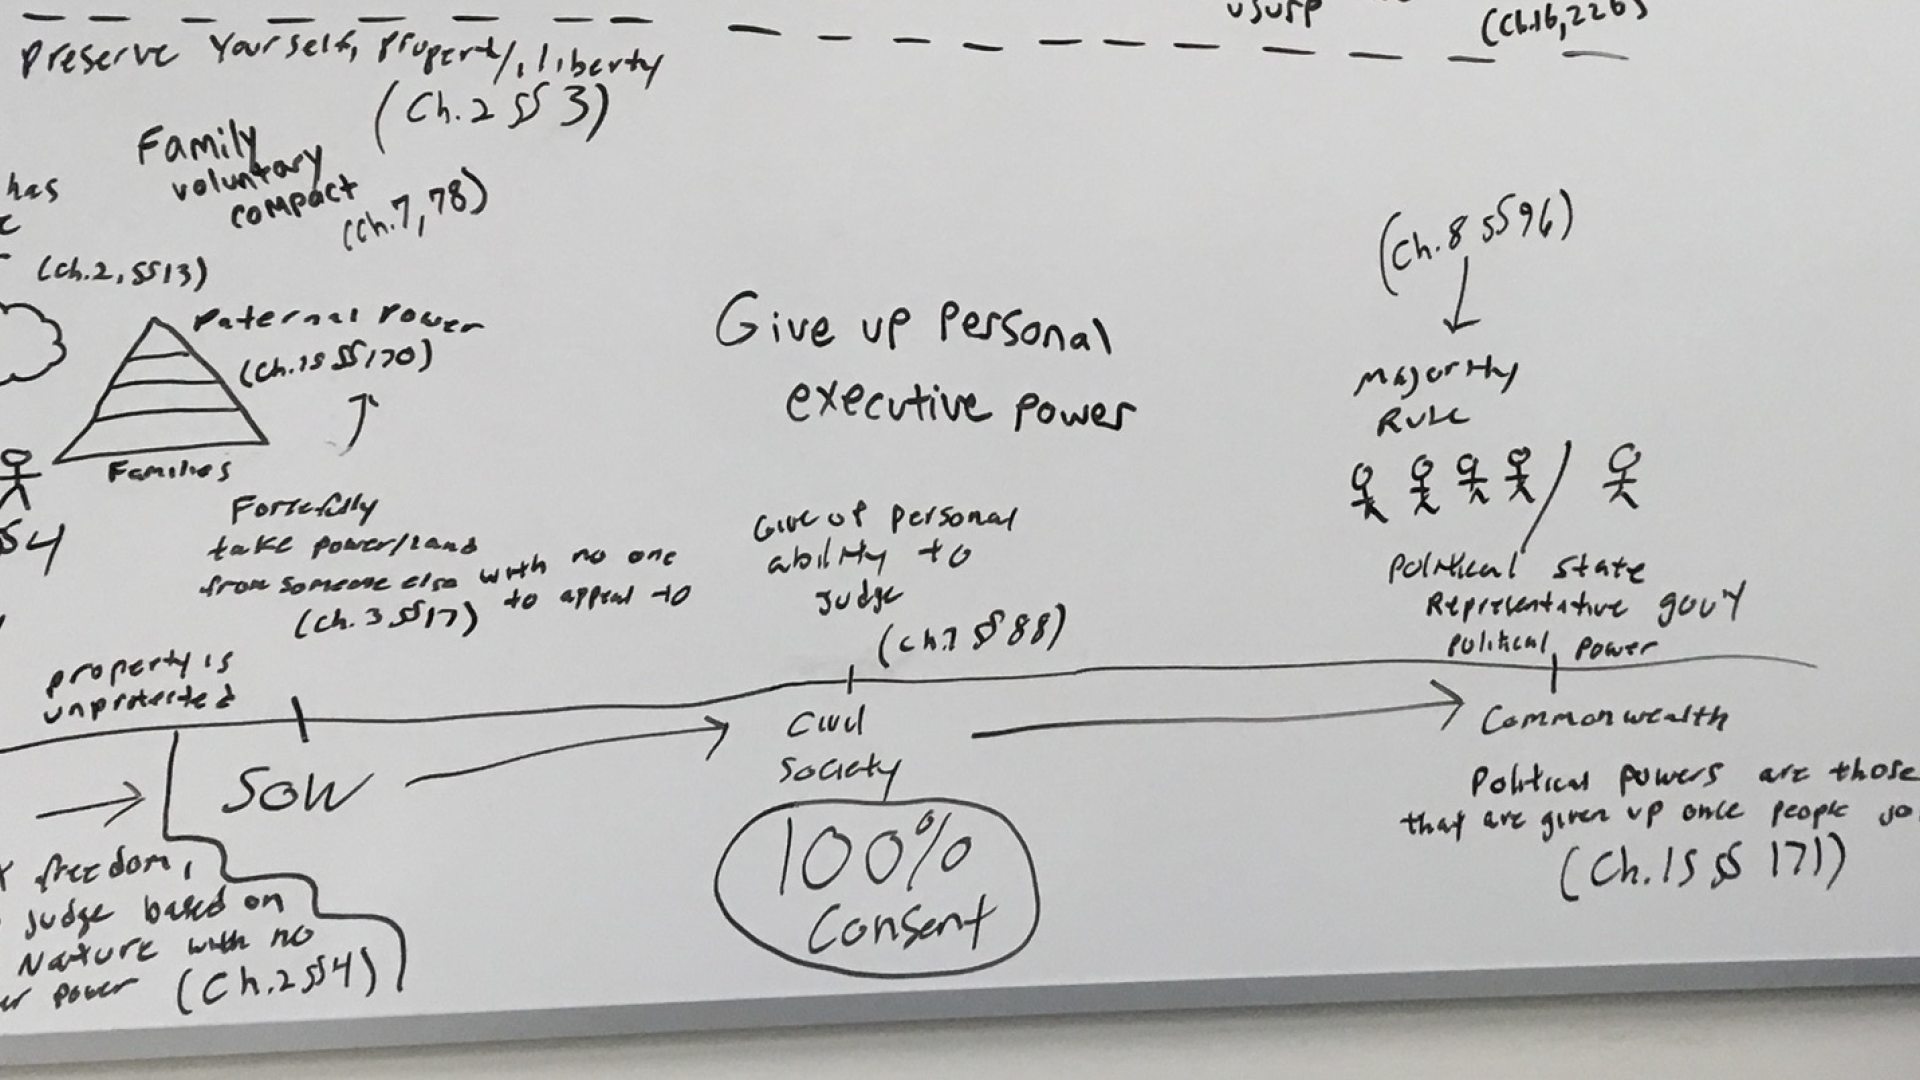 usurp
(Ch.16, 226)
Preserve Yourself, property, liberty
(Ch.2 §§ 3)
Family
voluntary
compact
(Ch.7, 78)
has
(Ch.2, §§13)
Paternal Power
(Ch.15 §§170)
Families
§4
Forcefully
take power/land
from someone else with no one
to appeal to
(Ch. 3 §§17)
property is
unprotected
Give up Personal
executive power
Give up personal
ability to
Judge
(Ch.7 §§ 88)
(Ch.8 §§96)
Majority
Rule
Political State
Representative gov't
Political Power
SOW
Civil
Society
100%
Consent
Commonwealth
Political powers are those
that are given up once people jo
(Ch.15 §§ 171)
freedom,
Judge based on
Nature with no
er power (Ch.2 §§4)